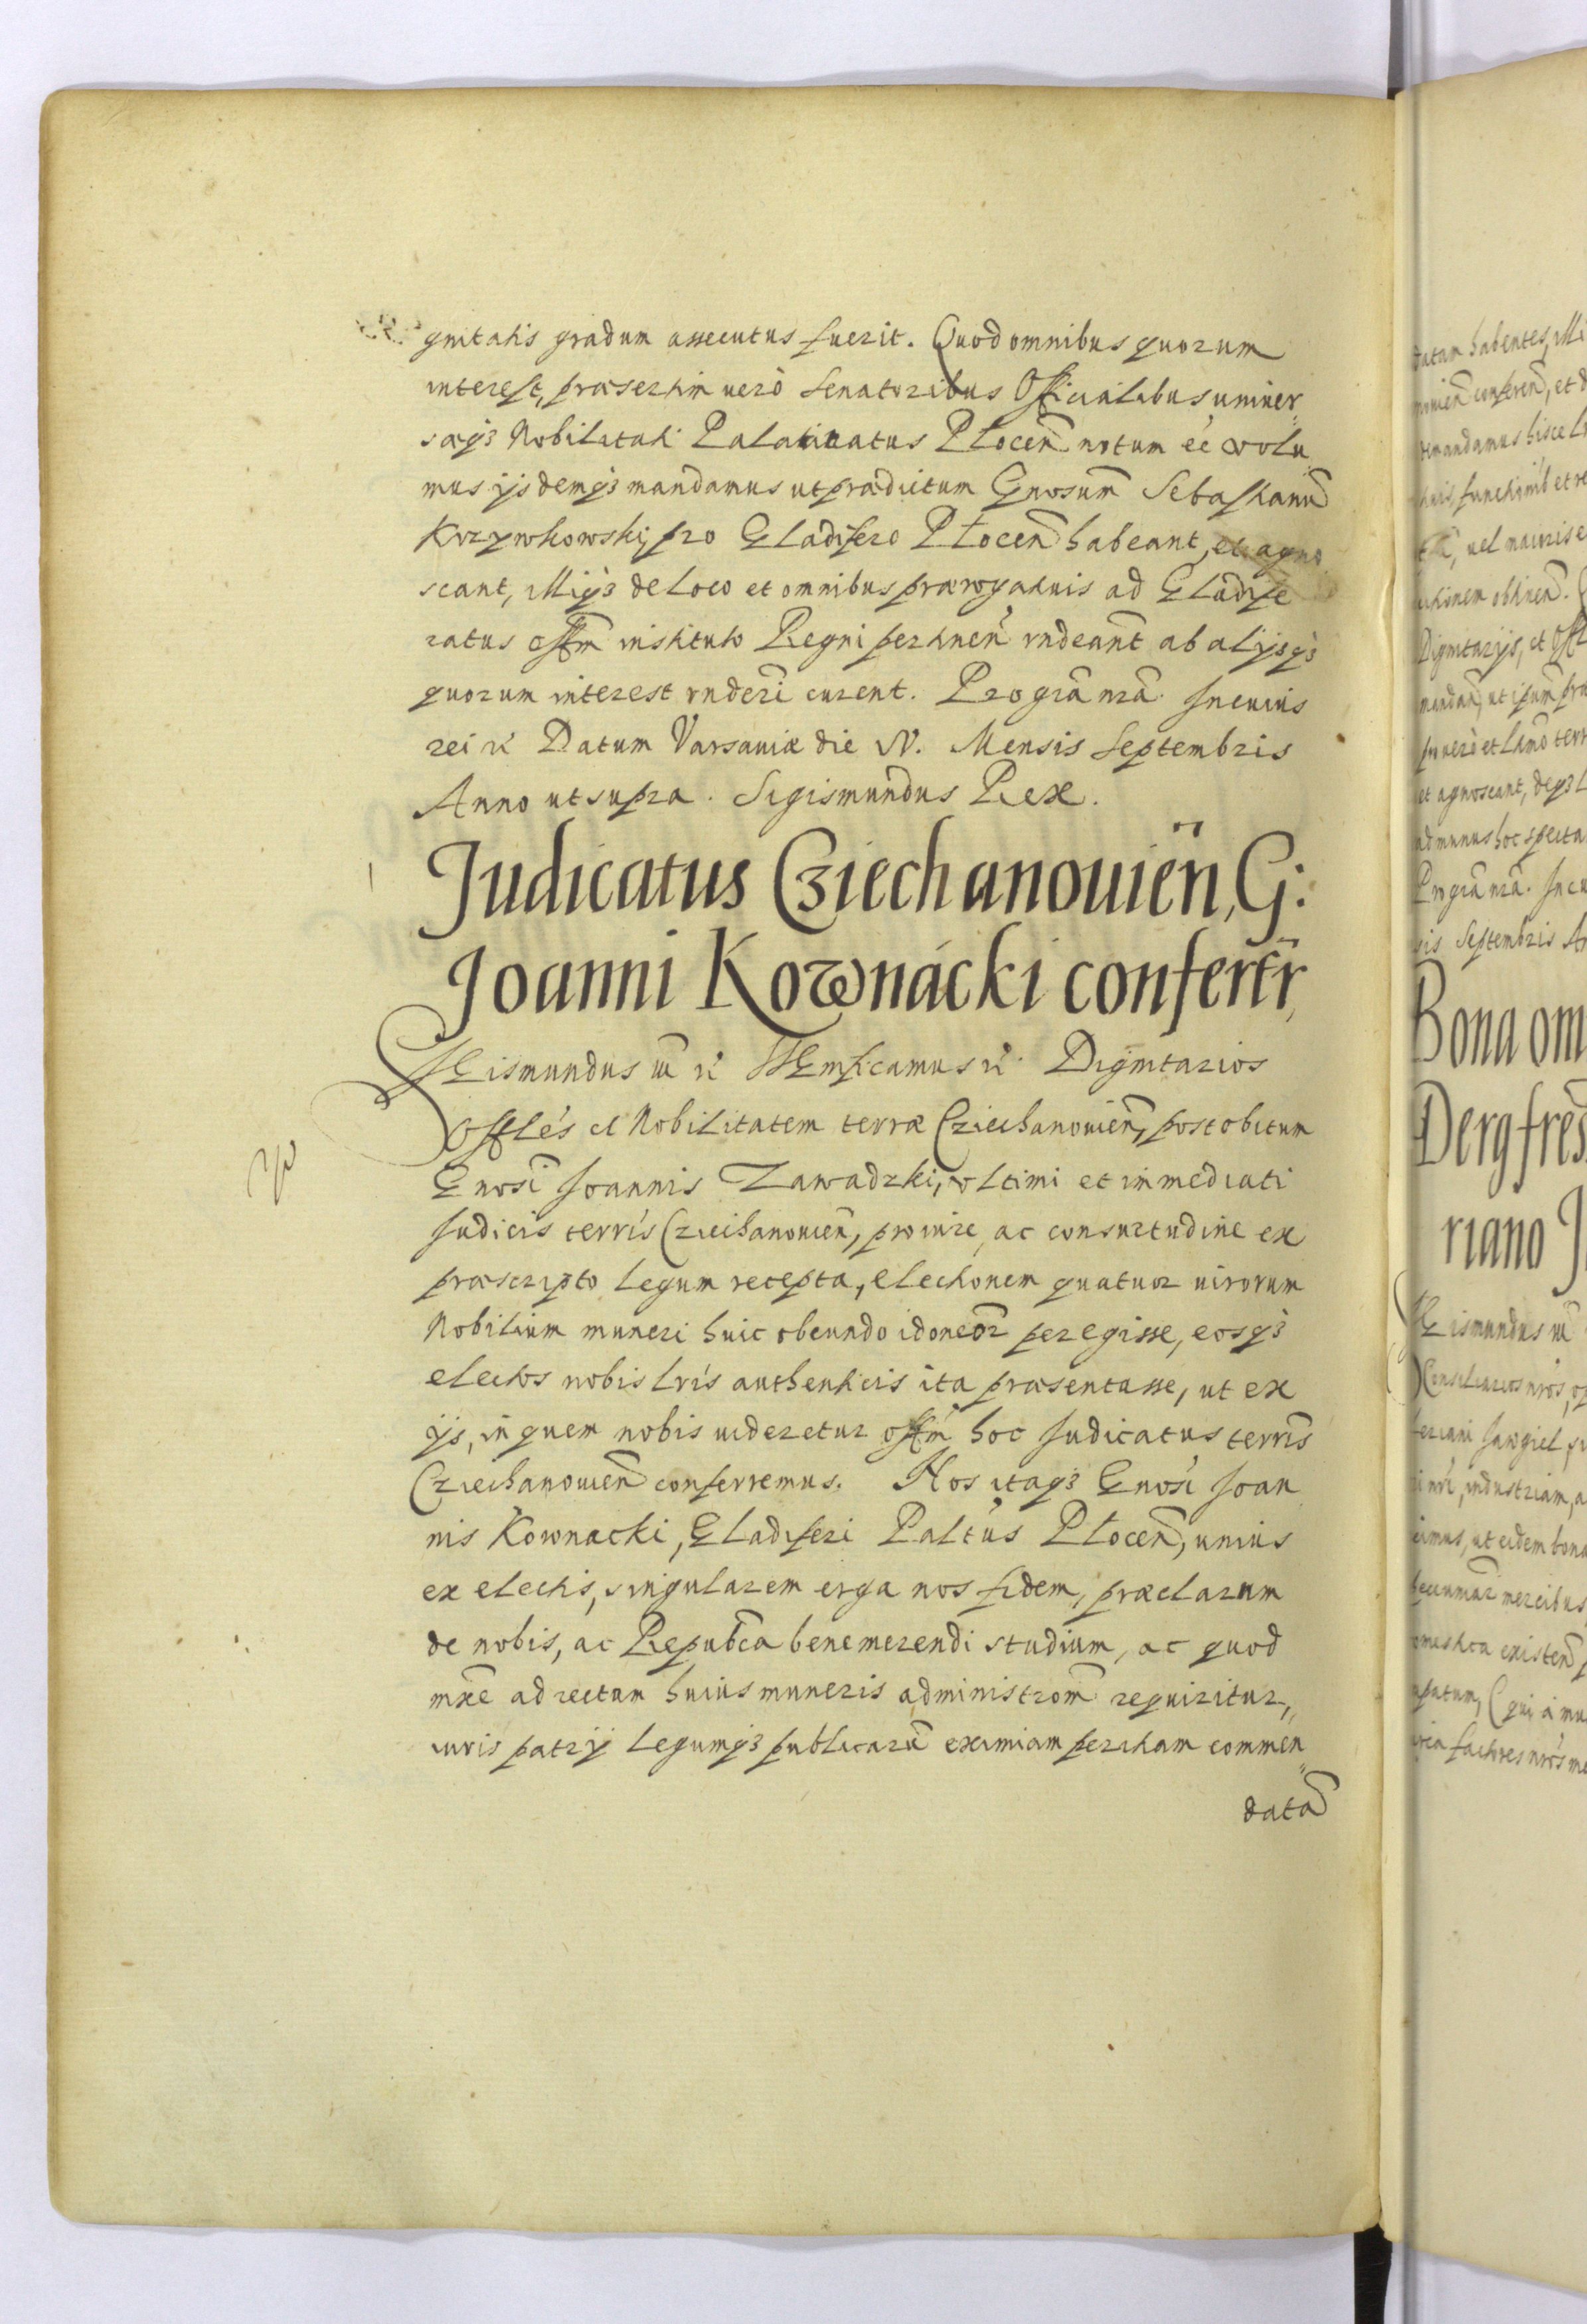 gnitatis gradum assecutus fuerit. Quod omnibus quorum
interest, præsertim verò Senatoribus Officialibus univer„
sæq3 Nobilitati Palatinatus Plocen̄ notum eē volu„
mus ijsdemq3 mandamus ut prædictum Gnosum̄ Sebastianū
Krzywkowski, pro Gladifero Plocen̄ habeant, et agno„
scant, illiq3 de loco et omnibus prærogatiuis ad Gladife„
ratus offm̄ instituto Regni pertinen̄ rndeant̄ ab alijsq3
quorum interest rnderi̅ curent. Pro gr̄a nr̄a. In cuius
rei rć Datum Varsaviæ die IV. Mensis Septembris
Anno ut supra. Sigismundus Rex.
Judicatus Cziechanouien̄, G:
Joanni Kownácki confertr̄,
SIgismundus III rć Significamus rć. Dignitarios
Offlés et Nobilitatem terræ Cziechanouien̄, post obitum
Gnosi̅ Joannis Zawadzki, vltimi et immediati
Judicis terrīs Cziechanouien̄, pro iure, ac consuetudine ex
præscripto legum recepta, electionem quatuor uirorum
Nobilium muneri huic obeundo idoneor̄ peregisse, eosq3
electos nobis lrís authenticis ita præsentasse, ut ex
ijs, in quem nobis uideretur offm̄ hoc Judicatus terrīs
Cziechanouien̄ conferremus. Nos itaq3 Gnosi̅ Joan„
nis Kownacki, Gladiferi Paltús Plocen̄, unius
ex electis, singularem erga nos fidem, præclarum
de nobis, ac Repub̄ca benemerendi studium, ac quod
mxe̅ ad rectam huius muneris administrom̄ requiritur,
iuris patrij legumq3 publicarū eximiam peritiam commen„
datā
datam habentes, illi
conferen̄, et d
demandamus hisce lr
et re
uel maioris e
obtinen̄.
Dignitarijs, et Off
mandan̄, ut ipsum̄ præ
terr
et agnoscant, deq3 l
ad munus hoc specta
Pro gr̄a nr̄a. In cu
sis Septembris An
Bona om
Derg frēs
riano J
SIgismundus III
Consiliarios nrós,
Jawgiel
industriam, a
ut eidem bona
mercibus
existen̄ p
(qui à mu
factores nrós me